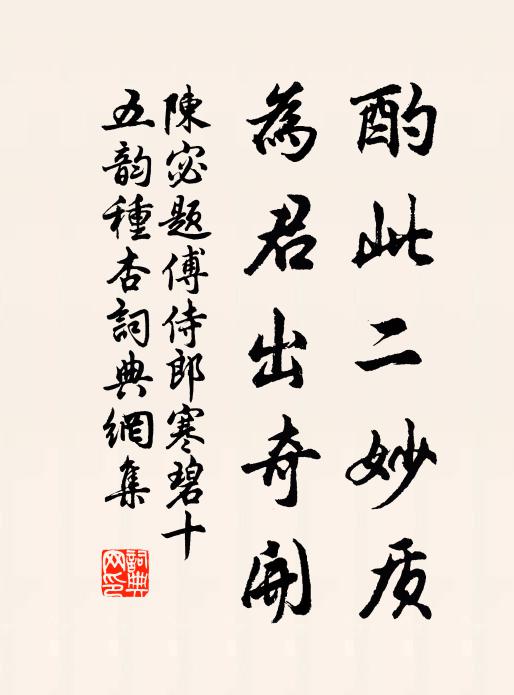 酌此二妙质
為君出奇開
陳宓題傅侍郎寒碧十
五韵種杏詞典網集
詞典
网印